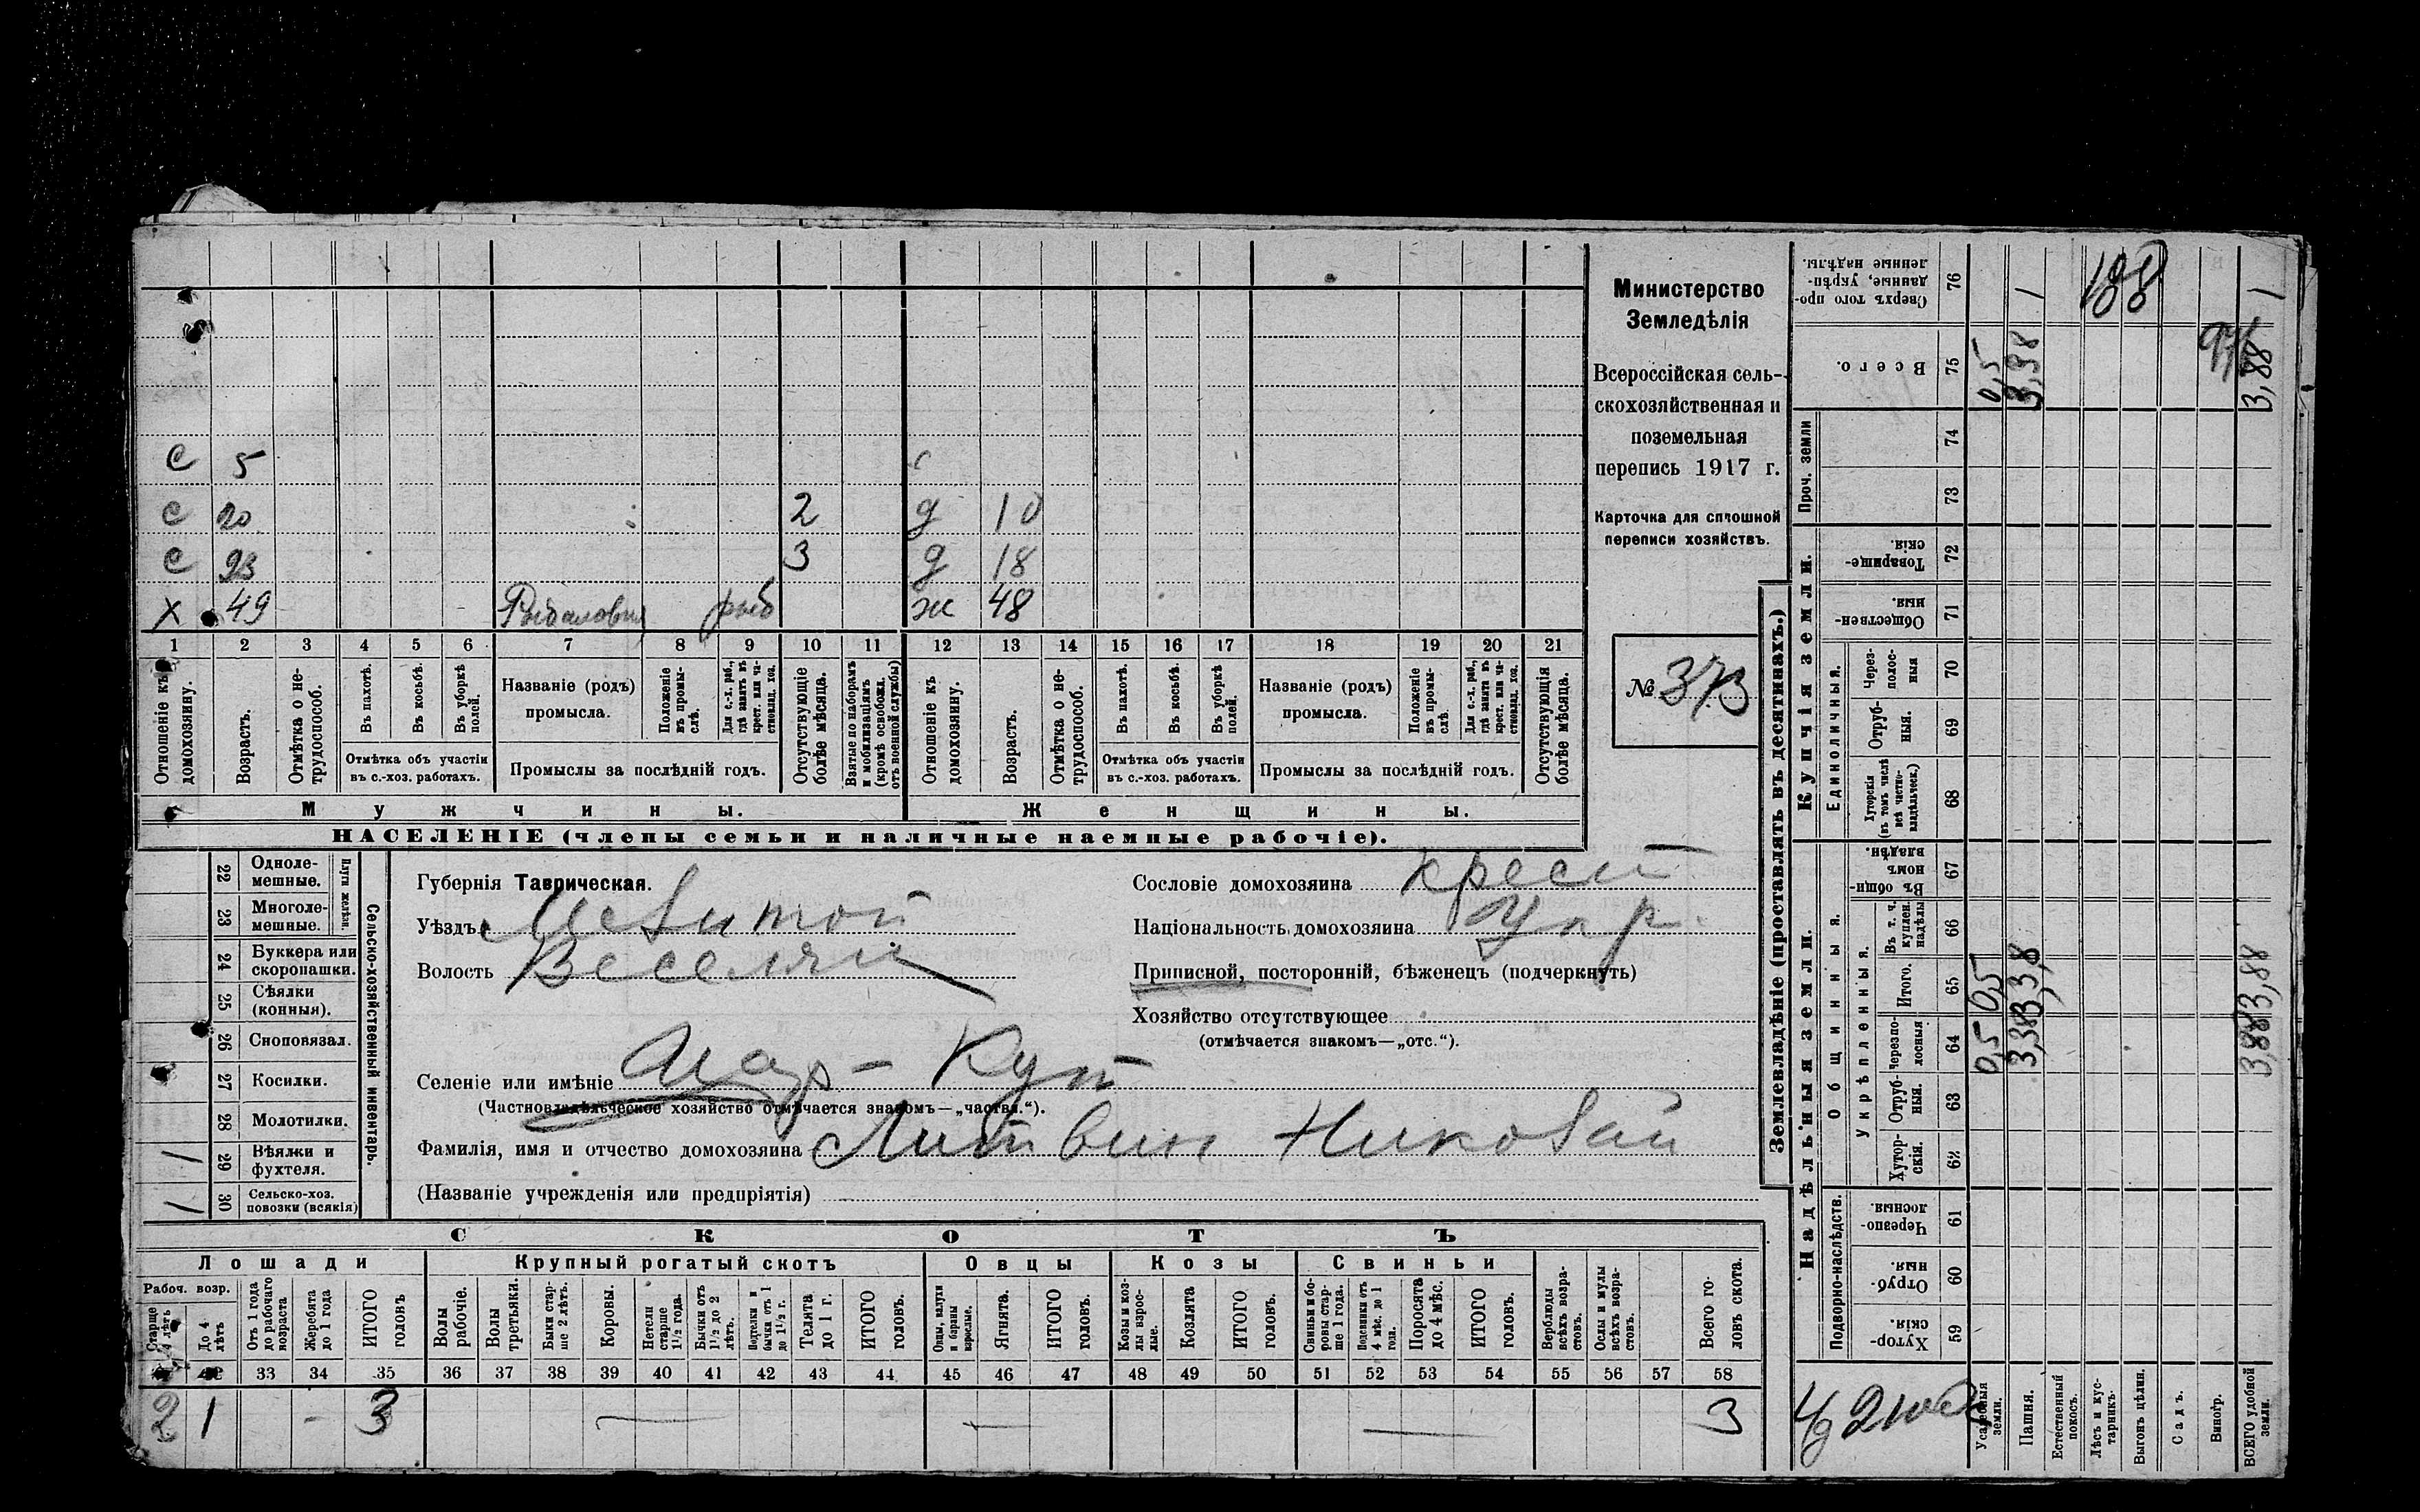 Министерство
Земледѣлія
Всероссійская сель-
скохозяйственная и
поземельная
перепись 1917 г.
Карточка для сплошной
переписи хозяйствъ.
№ 373
с 5
с 20 2 д 10
с 23 3 д 18
х 49 рыб ж 48
1 2 3 4 5 6 7 8 9 10 11 12 13 14 15 16 17 18 19 20 21
Отношеніе къ домохозяину.
Возрастъ.
Отмѣтка о не-трудоспособ.
Въ пахотѣ.
Въ косьбѣ.
Въ уборкѣ полей.
Отмѣтка объ участіи
въ с.-хоз. работахъ.
Названіе (родъ)
промысла.
Положеніе въ промы-слѣ.
Для с.-х. раб., гдѣ занятъ въ крест. или ча-стновлад. хоз.
Промыслы за послѣдній годъ.
Отсутствующіе болѣе мѣсяца.
Взятые по наборамъ и мобилизаціямъ (кромѣ освобожд. отъ военной службы)
Отношеніе къ домохозяину.
Возрастъ.
Отмѣтка о не-трудоспособ.
Въ пахотѣ.
Въ косьбѣ.
Въ уборкѣ полей.
Отмѣтка объ участіи
въ с.-хоз. работахъ.
Названіе (родъ)
промысла.
Положеніе въ промы-слѣ.
Для с.-х. раб., гдѣ занята въ крест. или ча-стновлад. хоз.
Промыслы за послѣдній годъ.
Отсутствующія болѣе мѣсяца.
Мужчины.
Женщины.
НАСЕЛЕНІЕ (члены семьи и наличные наемные рабочіе).
Сельско-хозяйственный инвентарь.
Плуги желѣзн.
22 Одноле-мешные.
23 Многоле-мешные.
24 Буккера или скоропашки.
25 Сѣялки (конныя).
26 Сноповязал.
27 Косилки.
28 Молотилки.
1 29 Вѣялки и фухтеля.
1 30 Сельско-хоз. повозки (всякія)
Губернія Таврическая.
Уѣздъ Мелитоп
Волость Веселян
Селеніе или имѣніе Цар-Кут
(Частновладѣльческое хозяйство отмѣчается знакомъ—„частн.“).
Фамилія, имя и отчество домохозяина Литвин Николай
(Названіе учрежденія или предпріятія)
Сословіе домохозяина крест
Національность домохозяина Укр.
Приписной, посторонній, бѣженецъ (подчеркнуть)
Хозяйство отсутствующее
(отмѣчается знакомъ—„отс.“).
СКОТЪ
Лошади
Крупный рогатый скотъ
Овцы
Козы
Свиньи
Рабоч. возр.
Старше 4 лѣтъ
До 4 лѣтъ
Отъ 1 года до рабочаго возраста
Жеребята до 1 года
ИТОГО головъ
Волы рабочіе.
Волы третьяки.
Быки стар-ше 2 лѣтъ.
Коровы.
Нетели старше 1½ года.
Бычки отъ 1½ до 2 лѣтъ.
Подтелки и бычки отъ 1 до 1½ г.
Телята до 1 г.
ИТОГО головъ.
Овцы, валухи и бараны взрослые.
Ягнята.
ИТОГО головъ.
Козы и коз-лы взрос-лые.
Козлята
ИТОГО головъ.
Свиньи и бо-ровы стар-ше 1 года.
Подсвинки отъ 4 мѣс. до 1 года.
Поросята до 4 мѣс.
ИТОГО головъ.
Верблюды всѣхъ возра-стовъ.
Ослы и мулы всѣхъ возра-стовъ.
Всего го-ловъ скота.
33 34 35 36 37 38 39 40 41 42 43 44 45 46 47 48 49 50 51 52 53 54 55 56 57 58
2 1 - 3 3
Землевладѣніе (проставлять въ десятинахъ.)
Надѣльныя земли.
Купчія земли.
Проч. земли
Подворно-наслѣдств.
Общинныя.
Укрѣпленныя.
Единоличныя.
Сверхъ того про-данные, укрѣп-ленные надѣлы. 76
Всего. 75
74
73
Товарище-скія. 72
Обществен-ныя. 71
Через-полос-ныя 70
Отруб-ныя. 69
Хуторскія (въ томъ числѣ всѣ частно-владѣльческ.) 68
Въ общин-номъ владѣн. 67
Въ т. ч. куплен. надѣлы 66
Итого. 65
Черезпо-лосныя 64
Отруб-ныя. 63
Хутор-скія. 62
Черезпо-лосныя. 61
Отруб-ныя. 60
Хутор-скія. 59
Усадебныя земли. 0,5 0,5 0,5
Пашня. 3,38 3,38 3,38 1
Естественный покосъ.
Лѣсъ и кус-тарникъ.
Выгонъ цѣлин.
Садъ.
Виногр.
ВСЕГО удобной земли. 3,88 3,88 3,88 1
188